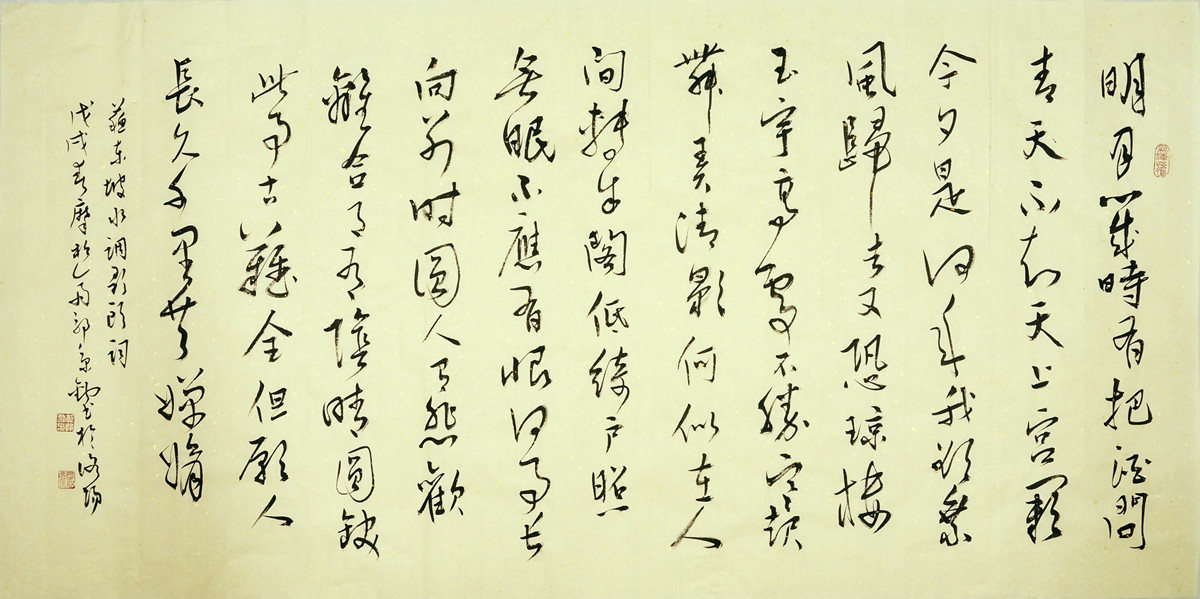 明月幾時有把酒問
青天不知天上宮闕
今夕是何年我欲乘
風歸去又恐瓊樓
玉宇高處不勝寒起
舞弄清影何似在人
間轉朱閣低綺户照
無眠不應有恨何事長
向別時圓人有悲歡
離合月有陰晴圓缺
此事古難全但願人
長久千里共嬋娟
蘇東坡水調歌頭詞
戊戌春摩於乙丙郭京鈞書於洛陽